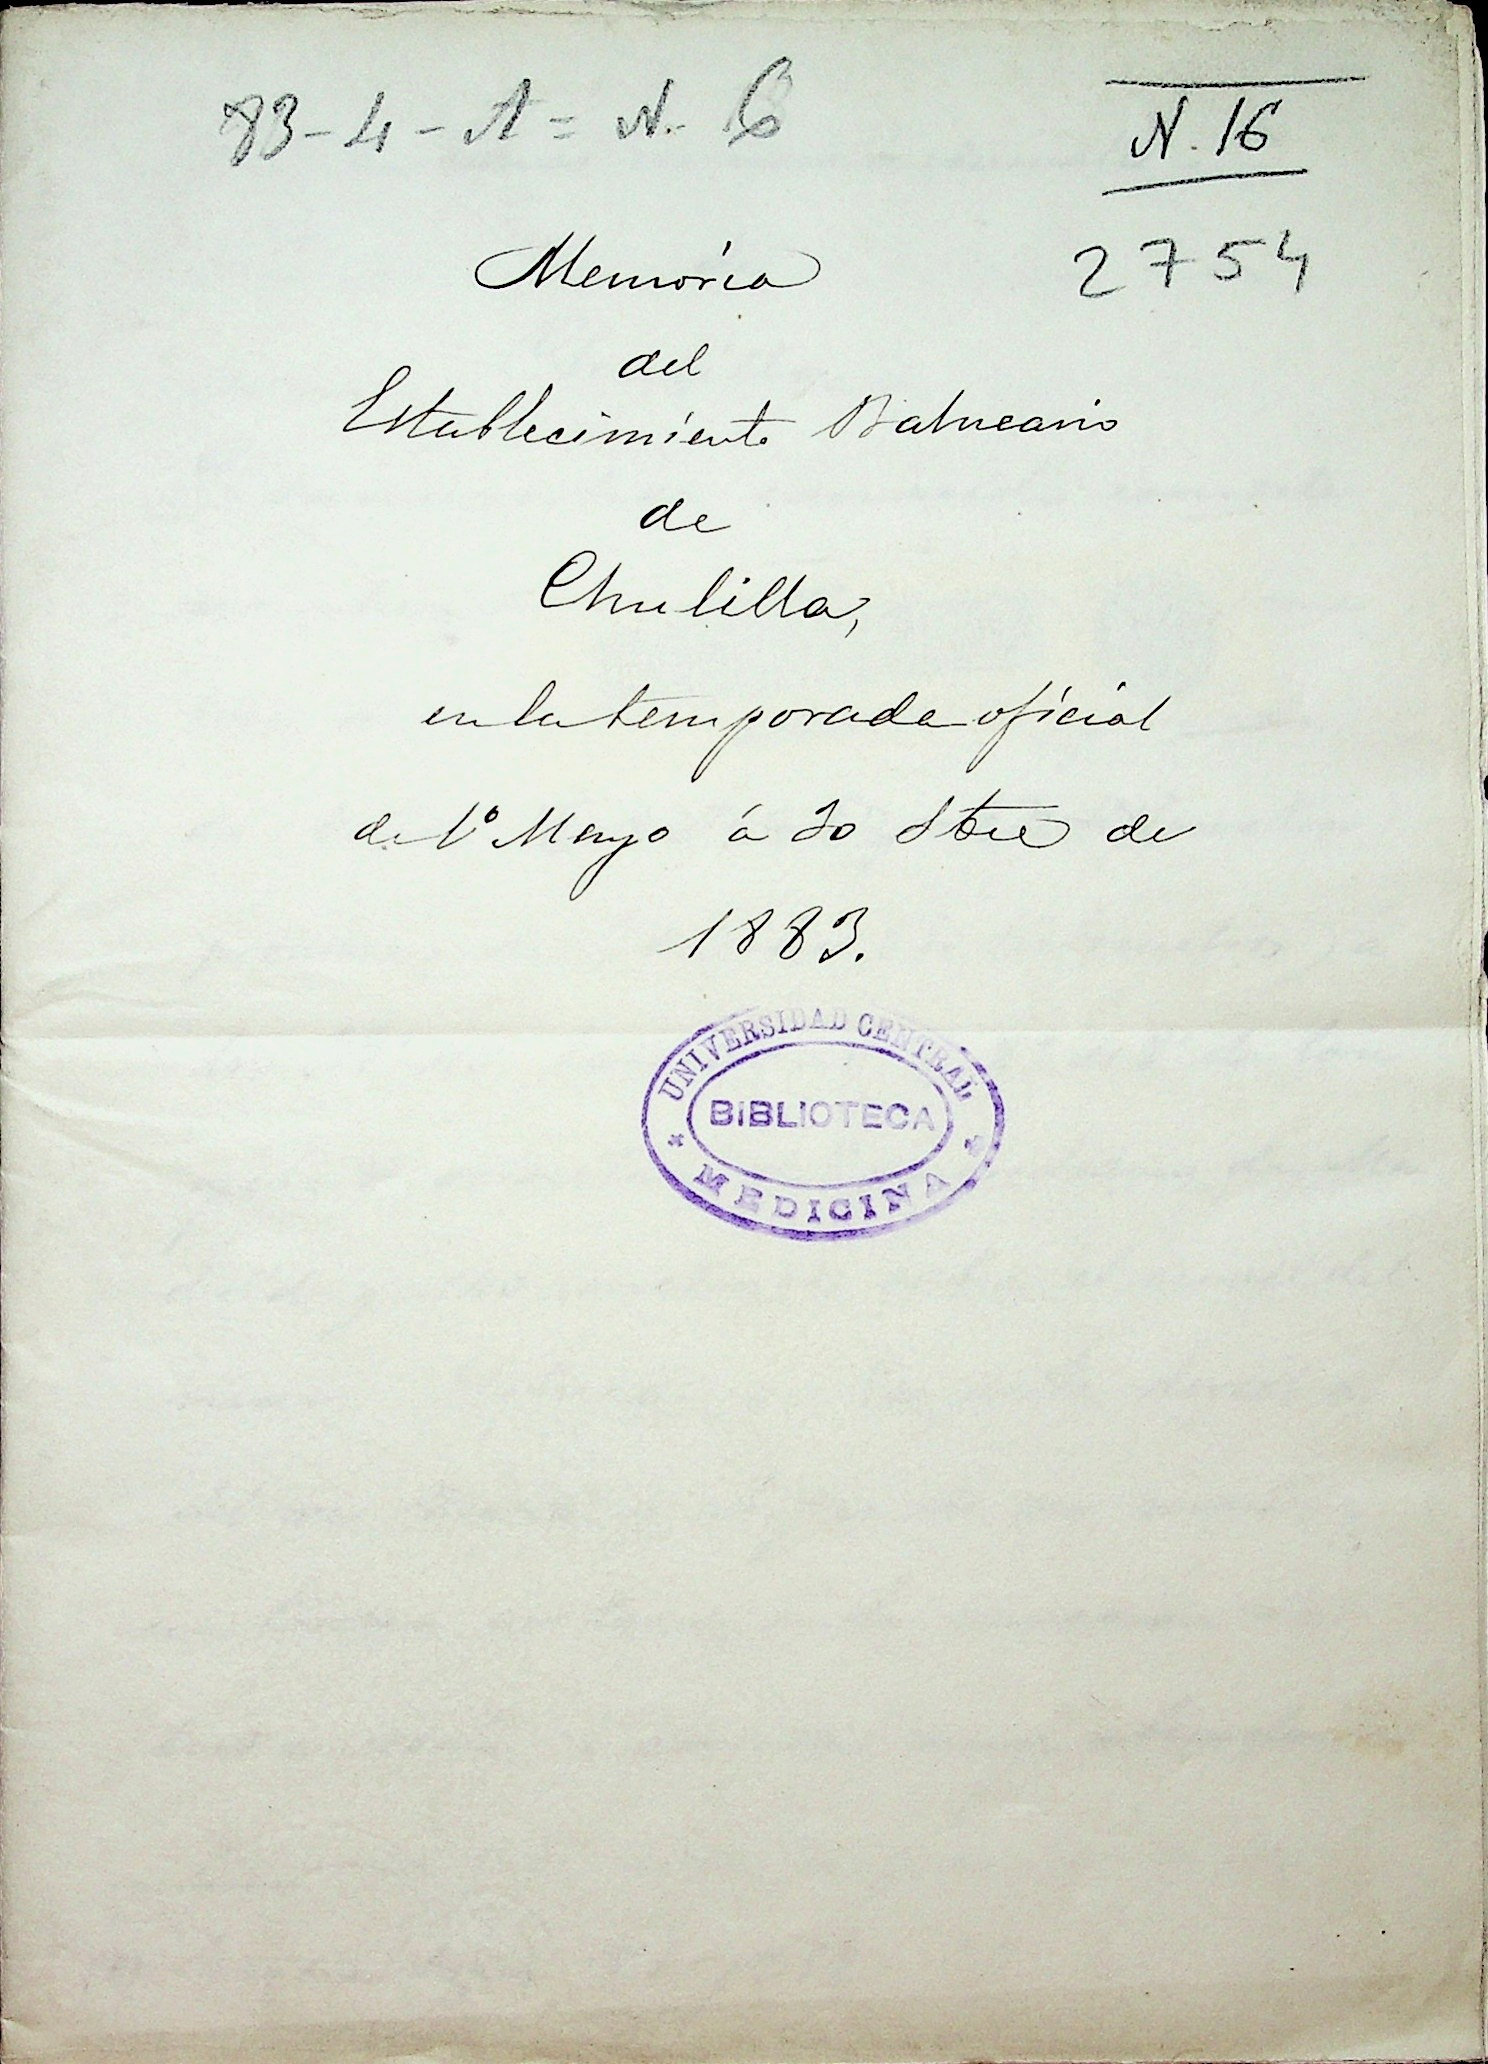 83-4-A = N. 6
N. 16
2754
Memoria
del
Establecimiento Balneario
de
Chulilla,
en la temporada oficial
de 1º Mayo á 30 Stbre de
1883.
UNIVERSIDAD CENTRAL
BIBLIOTECA
MEDICINA